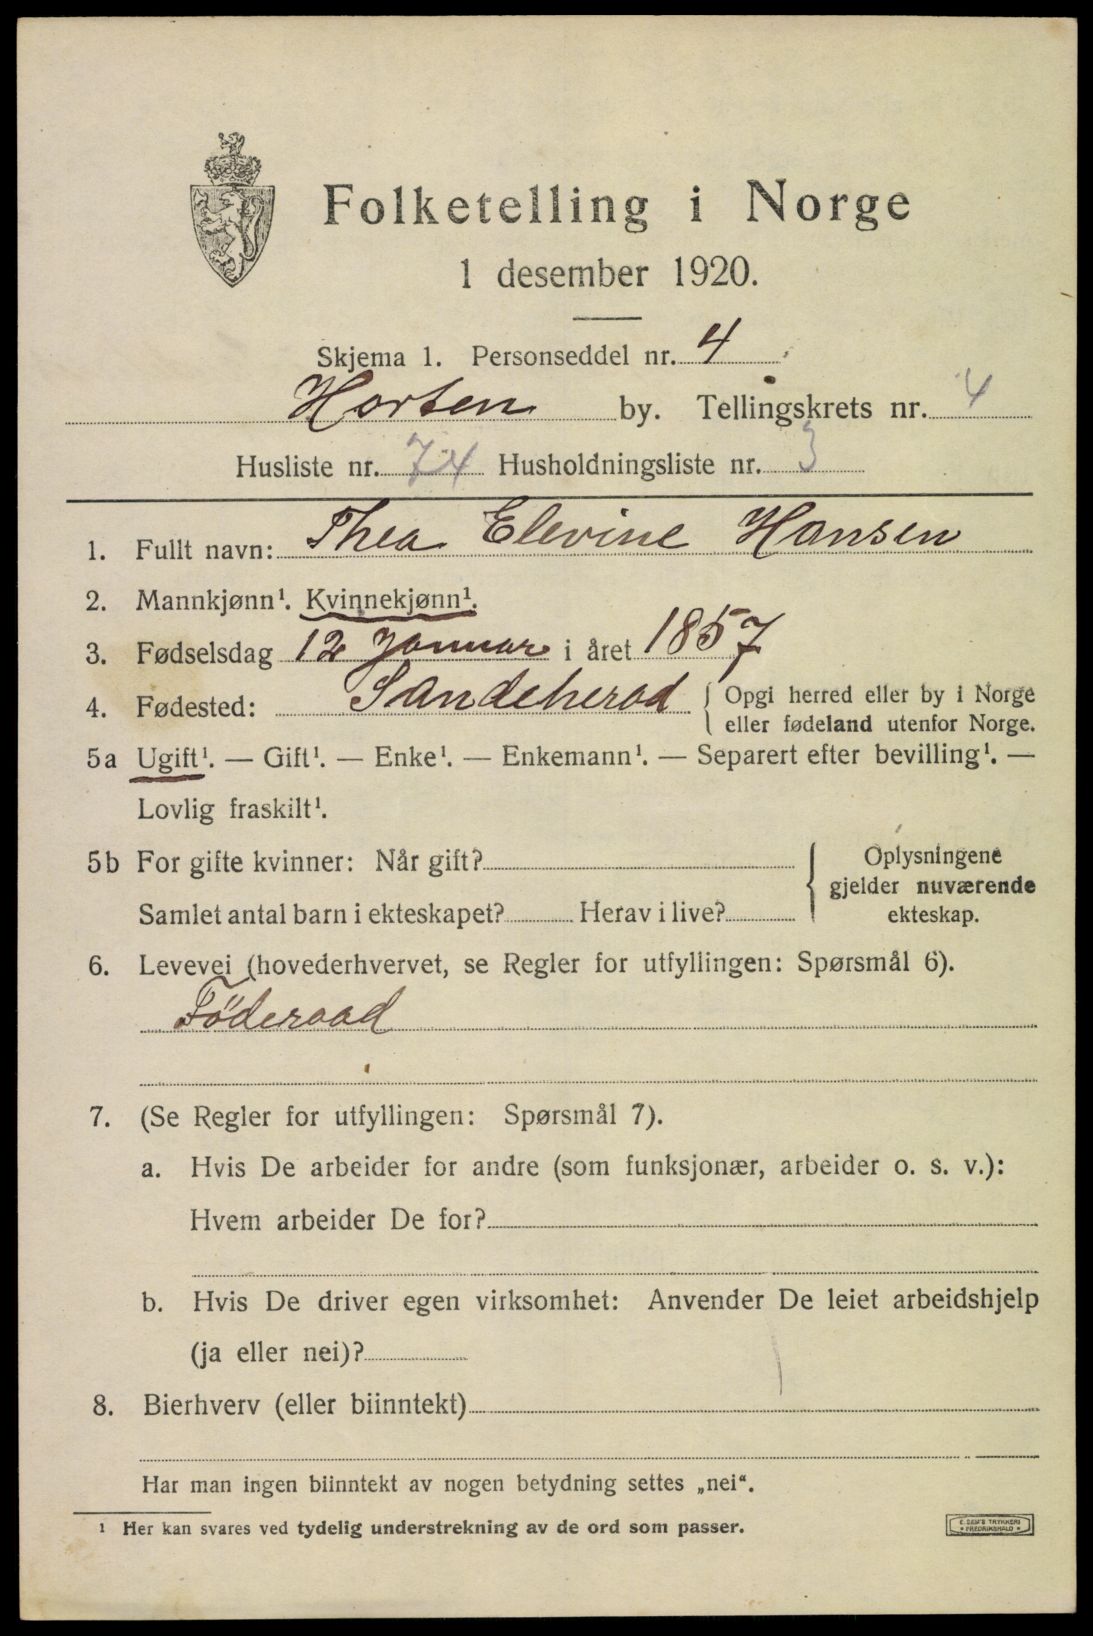 Folketelling i Norge
1 desember 1920.
Skjema 1. Personseddel nr. 4
Horten by. Tellingskrets nr. 4
Husliste nr. 74 Husholdningsliste nr. 3
1. Fullt navn: Thea Elevine Hansen
2. Mannkjønn¹. Kvinnekjønn¹.
3. Fødselsdag 12 Januar i året 1857
4. Fødested: Sandeherad { Opgi herred eller by i Norge
eller fødeland utenfor Norge.
5a Ugift¹. — Gift¹. — Enke¹. — Enkemann¹. — Separert efter bevilling¹. —
Lovlig fraskilt¹.
5b For gifte kvinner: Når gift? { Oplysningene
gjelder nuværende
Samlet antal barn i ekteskapet? Herav i live? ekteskap.
6. Levevei (hovederhvervet, se Regler for utfyllingen: Spørsmål 6).
Föderaad
7. (Se Regler for utfyllingen: Spørsmål 7).
a. Hvis De arbeider for andre (som funksjonær, arbeider o. s. v.):
Hvem arbeider De for?
b. Hvis De driver egen virksomhet: Anvender De leiet arbeidshjelp
(ja eller nei)?
8. Bierhverv (eller biinntekt)
Har man ingen biinntekt av nogen betydning settes „nei“.
¹ Her kan svares ved tydelig understrekning av de ord som passer.
E. SEM'S TRYKKERI
* FREDRIKSHALD *